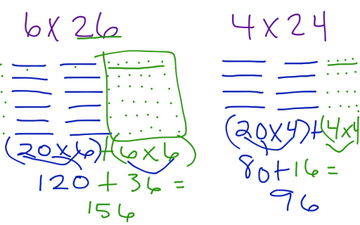 6 x 26
(20 x 6) + (6 x 6)
120 + 36 =
156
4 x 24
(20 x 4) + (4 x 4)
80 + 16 =
96